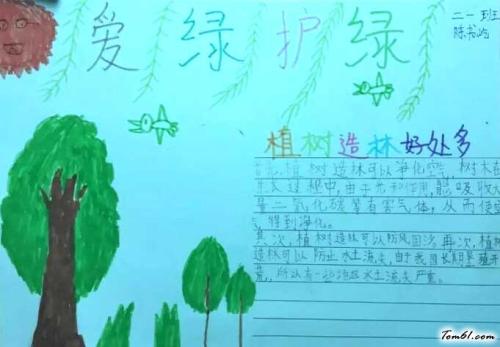 爱绿护绿
二一班
陈书屿
植树造林好处多
首先,植树造林可以净化空气,树木在
生长过程中,由于光和作用,能吸收大
量二氧化碳等有害气体,从而使空
气得到净化。
其次,植树造林可以防风固沙,再次,植树
造林可以防止水土流失,由于我国长期
荒,所以有一些地区水土流失严重。
Tom61.com